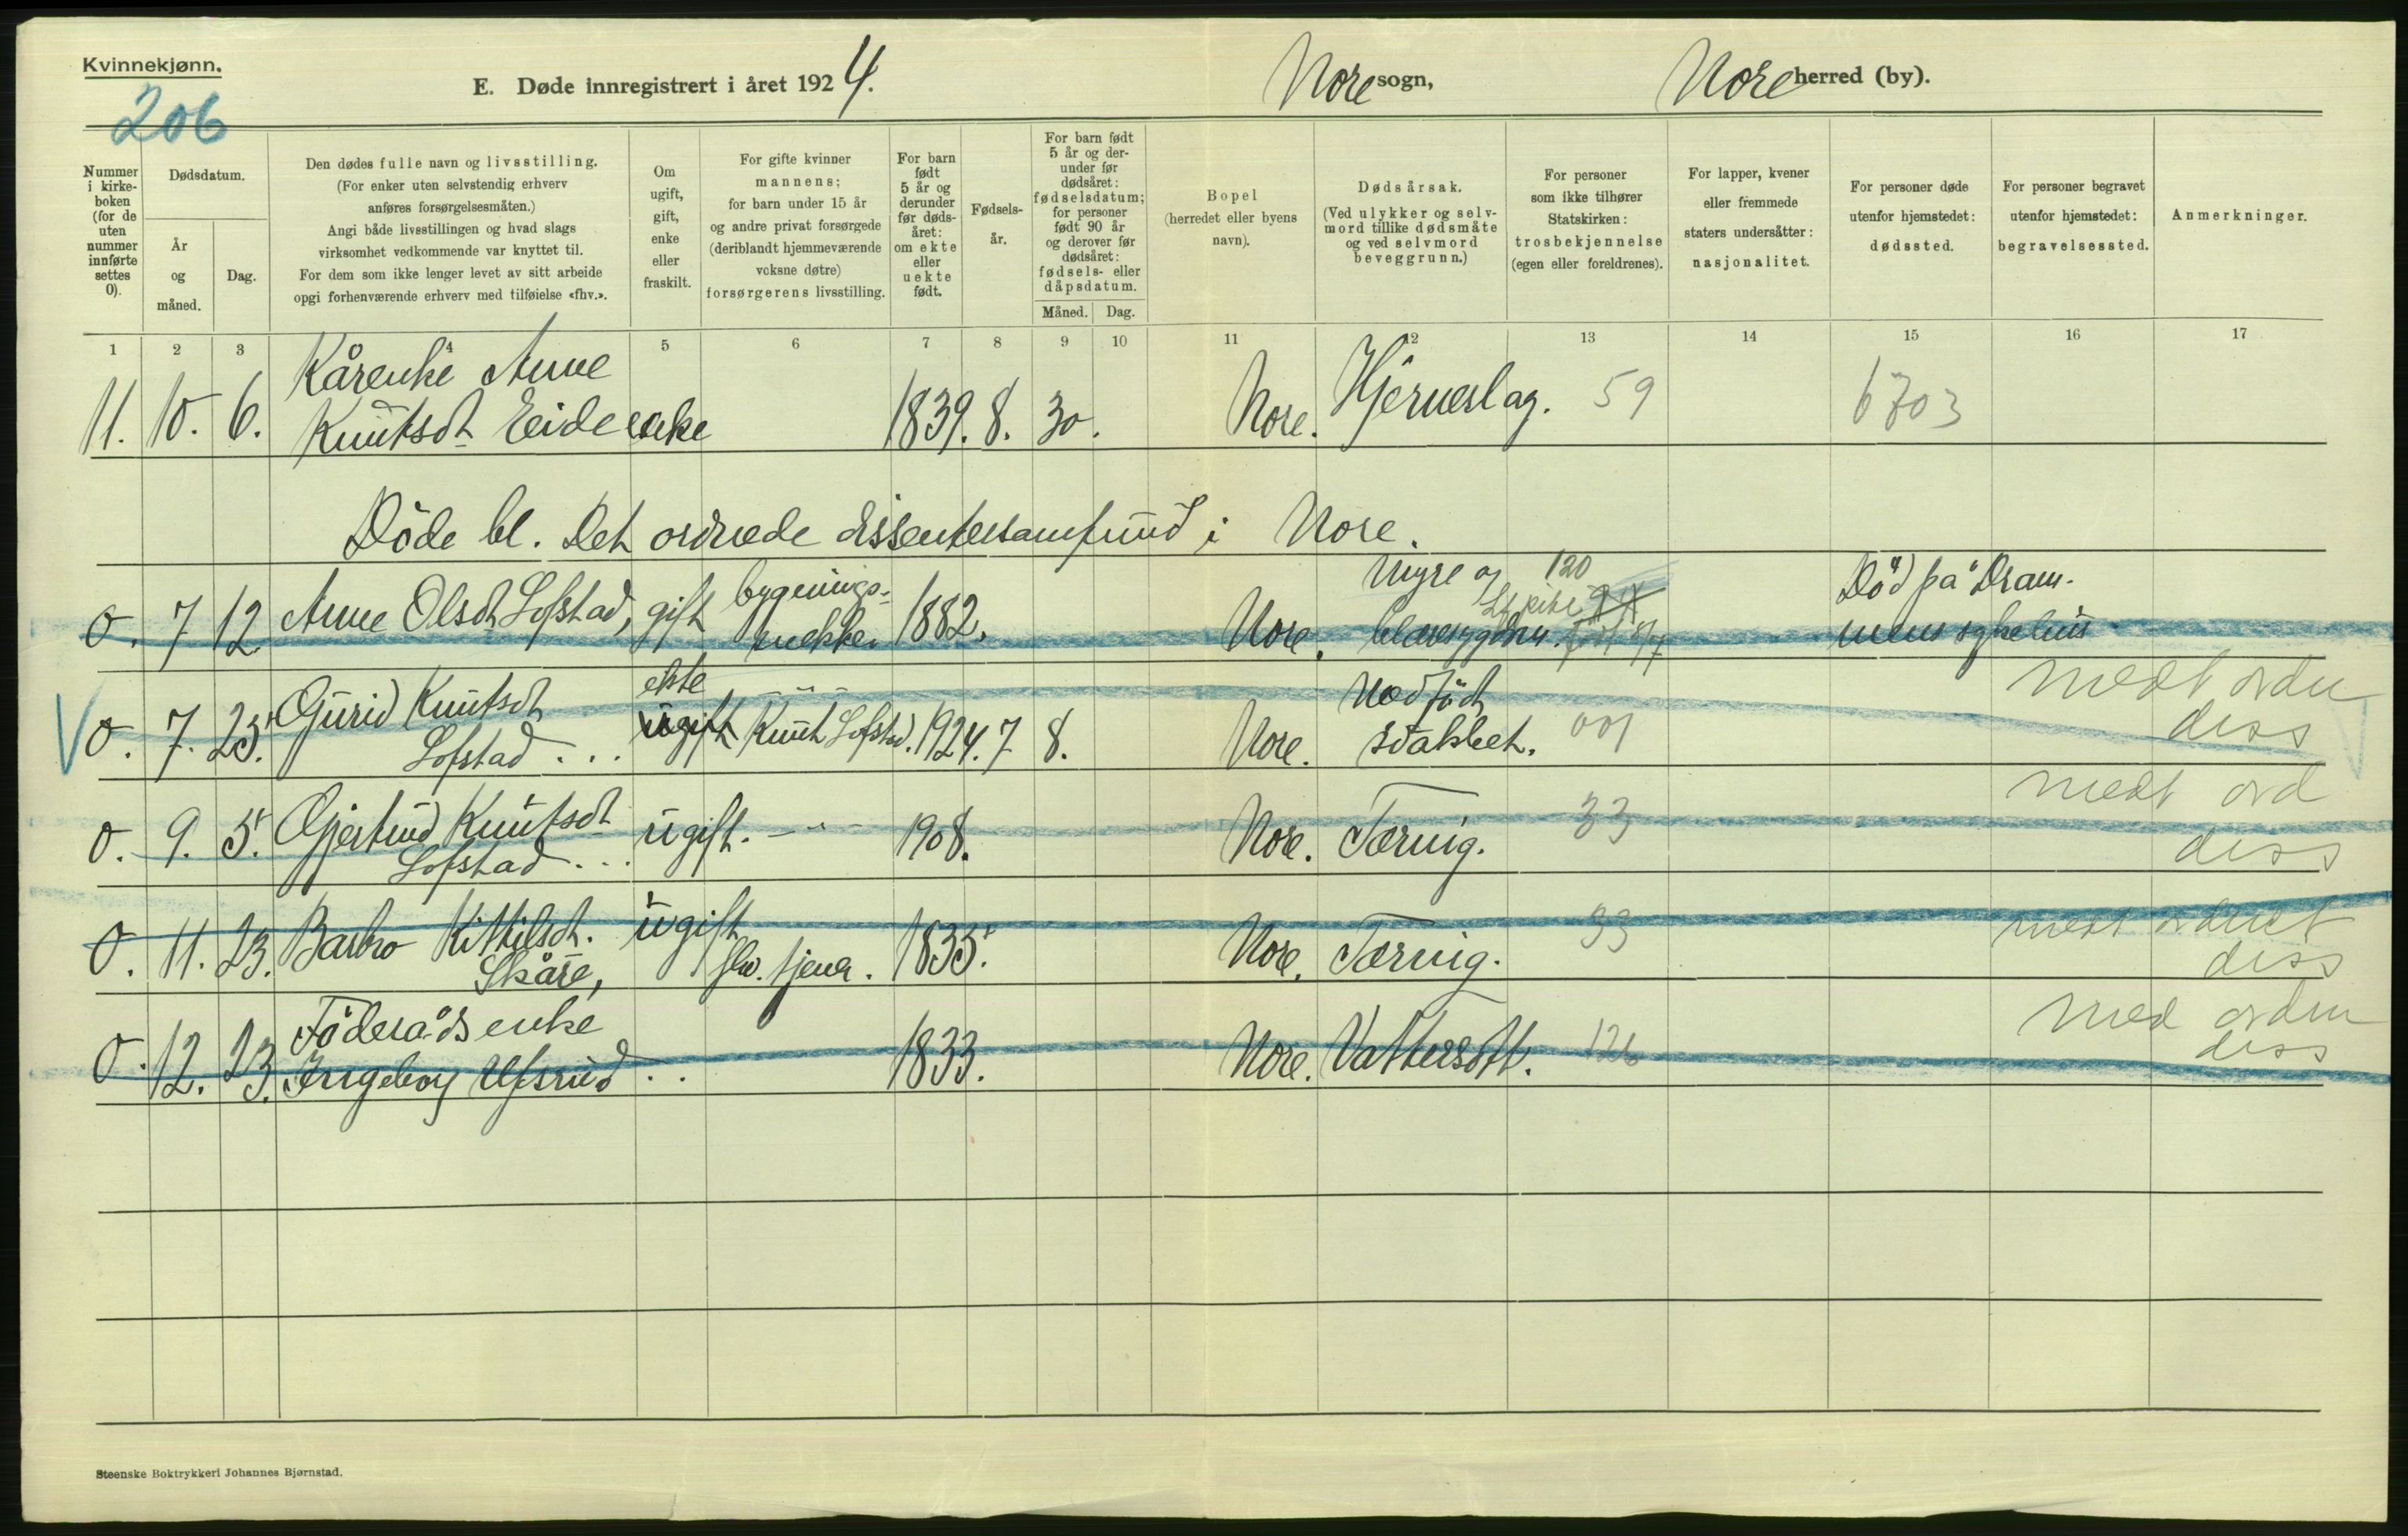 Kvinnekjønn.
206
E. Døde innregistrert i året 1924.
Nore sogn,
Nore herred (by).
Nummer i kirke- boken (for de uten nummer innførte settes 0).
Dødsdatum.
År og måned.
Dag.
Den dødes fulle navn og livsstilling.
(For enker uten selvstendig erhverv
anføres forsørgelsesmåten.)
Angi både livsstillingen og hvad slags
virksomhet vedkommende var knyttet til.
For dem som ikke lenger levet av sitt arbeide
opgi forhenværende erhverv med tilføielse «fhv.».
Om ugift, gift, enke eller fraskilt.
For gifte kvinner
mannens;
for barn under 15 år
og andre privat forsørgede
(deriblandt hjemmeværende
voksne døtre)
forsørgerens livsstilling.
For barn født 5 år og derunder før døds- året: om ekte eller uekte født.
Fødsels- år.
For barn født 5 år og der- under før dødsåret: fødselsdatum; for personer født 90 år og derover før dødsåret: fødsels- eller dåpsdatum.
Måned. Dag.
Bopel
(herredet eller byens
navn).
Dødsårsak.
(Ved ulykker og selv-
mord tillike dødsmåte
og ved selvmord
beveggrunn.)
For personer
som ikke tilhører
Statskirken:
trosbekjennelse
(egen eller foreldrenes).
For lapper, kvener
eller fremmede
staters undersåtter:
nasjonalitet.
For personer døde
utenfor hjemstedet:
dødssted.
For personer begravet
utenfor hjemstedet:
begravelsessted.
Anmerkninger.
1 2 3 4 5 6 7 8 9 10 11 12 13 14 15 16 17
Kårenke Anne
11. 10. 6. Knutsdt Eide enke 1839. 8. 30. Nore. Hjerneslag. 59 6703
Døde bl. Det ordnede dissentersamfund i Nore.
0. 7 12 Anne Olsdt Lofstad, gift bygnings- snekker 1882. Nore. Nyre og blæresygdom 120 Død på Dram- mens sykehus
0. 7. 23. Gurid Knutsdt Lofstad ... ekte ugift Knut Lofstad. 1924. 7 8. Nore. Nedfødt svakhet. 001 medt ordn diss
0. 9. 5. Gjertrud Knutsdt Lofstad ... ugift. —"— 1908. Nore. Tæring. 33 medt ord diss
0. 11. 23. Barbro Kittilsdt. Skåre, ugift fhv. tjener. 1835. Nore. Tæring. 33 medt ordnet diss
0. 12. 23. Føderådsenke Ingeborg Ufsrud .. 1833. Nore. Vattersott. 126 med ordn diss
Steenske Boktrykkeri Johannes Bjørnstad.